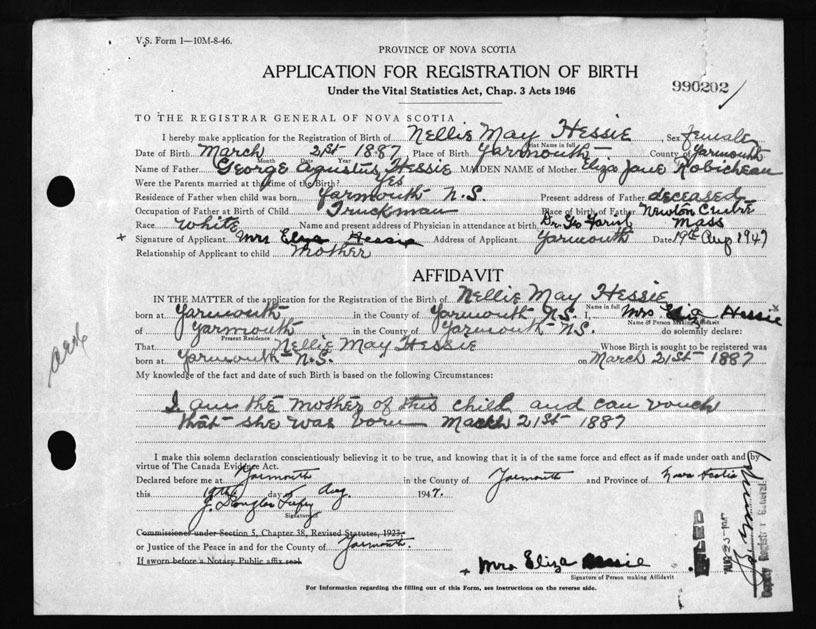 V.S. Form 1—10M-8-46.
PROVINCE OF NOVA SCOTIA
APPLICATION FOR REGISTRATION OF BIRTH
Under the Vital Statistics Act, Chap. 3 Acts 1946
990202
TO THE REGISTRAR GENERAL OF NOVA SCOTIA
I hereby make application for the Registration of Birth of Nellie May Hessie, Sex female
Print Name in full
Date of Birth March 21st 1887 Place of Birth Yarmouth County of Yarmouth
Month Date Year
Name of Father George Agustus Hessie MAIDEN NAME of Mother Eliza Jane Robicheau
Were the Parents married at the time of the Birth? Yes
Residence of Father when child was born Yarmouth N.S. Present address of Father deceased
Occupation of Father at Birth of Child Truckman Place of birth of Father Newton Centre Mass
Race White Name and present address of Physician in attendance at birth Dr. Geo
Signature of Applicant Mrs Eliza Hessie Address of Applicant Yarmouth Date 19th Aug 1947
Relationship of Applicant to child Mother
AFFIDAVIT
IN THE MATTER of the application for the Registration of the Birth of Nellie May Hessie
Name in full
born at Yarmouth in the County of Yarmouth N.S. I, Mrs Eliza Hessie
Name of Person making Affidavit
of Yarmouth in the County of Yarmouth N.S. do solemnly declare:
Present Residence
That Nellie May Hessie Whose Birth is sought to be registered was
born at Yarmouth N.S. on March 21st 1887
My knowledge of the fact and date of such Birth is based on the following Circumstances:
I am the mother of this child and can vouch
that she was born March 21st 1887
I make this solemn declaration conscientiously believing it to be true, and knowing that it is of the same force and effect as if made under oath and by
virtue of The Canada Evidence Act.
Declared before me at Yarmouth in the County of Yarmouth and Province of Nova Scotia
this 19th day of Aug. 1947.
J. Douglas
Signature
Commissioner under Section 5, Chapter 38, Revised Statutes, 1923.
or Justice of the Peace in and for the County of Yarmouth
If sworn before a Notary Public affix seal
Mrs Eliza Hessie
Signature of Person making Affidavit
For Information regarding the filling out of this Form, see instructions on the reverse side.
FILED
Deputy Registrar General